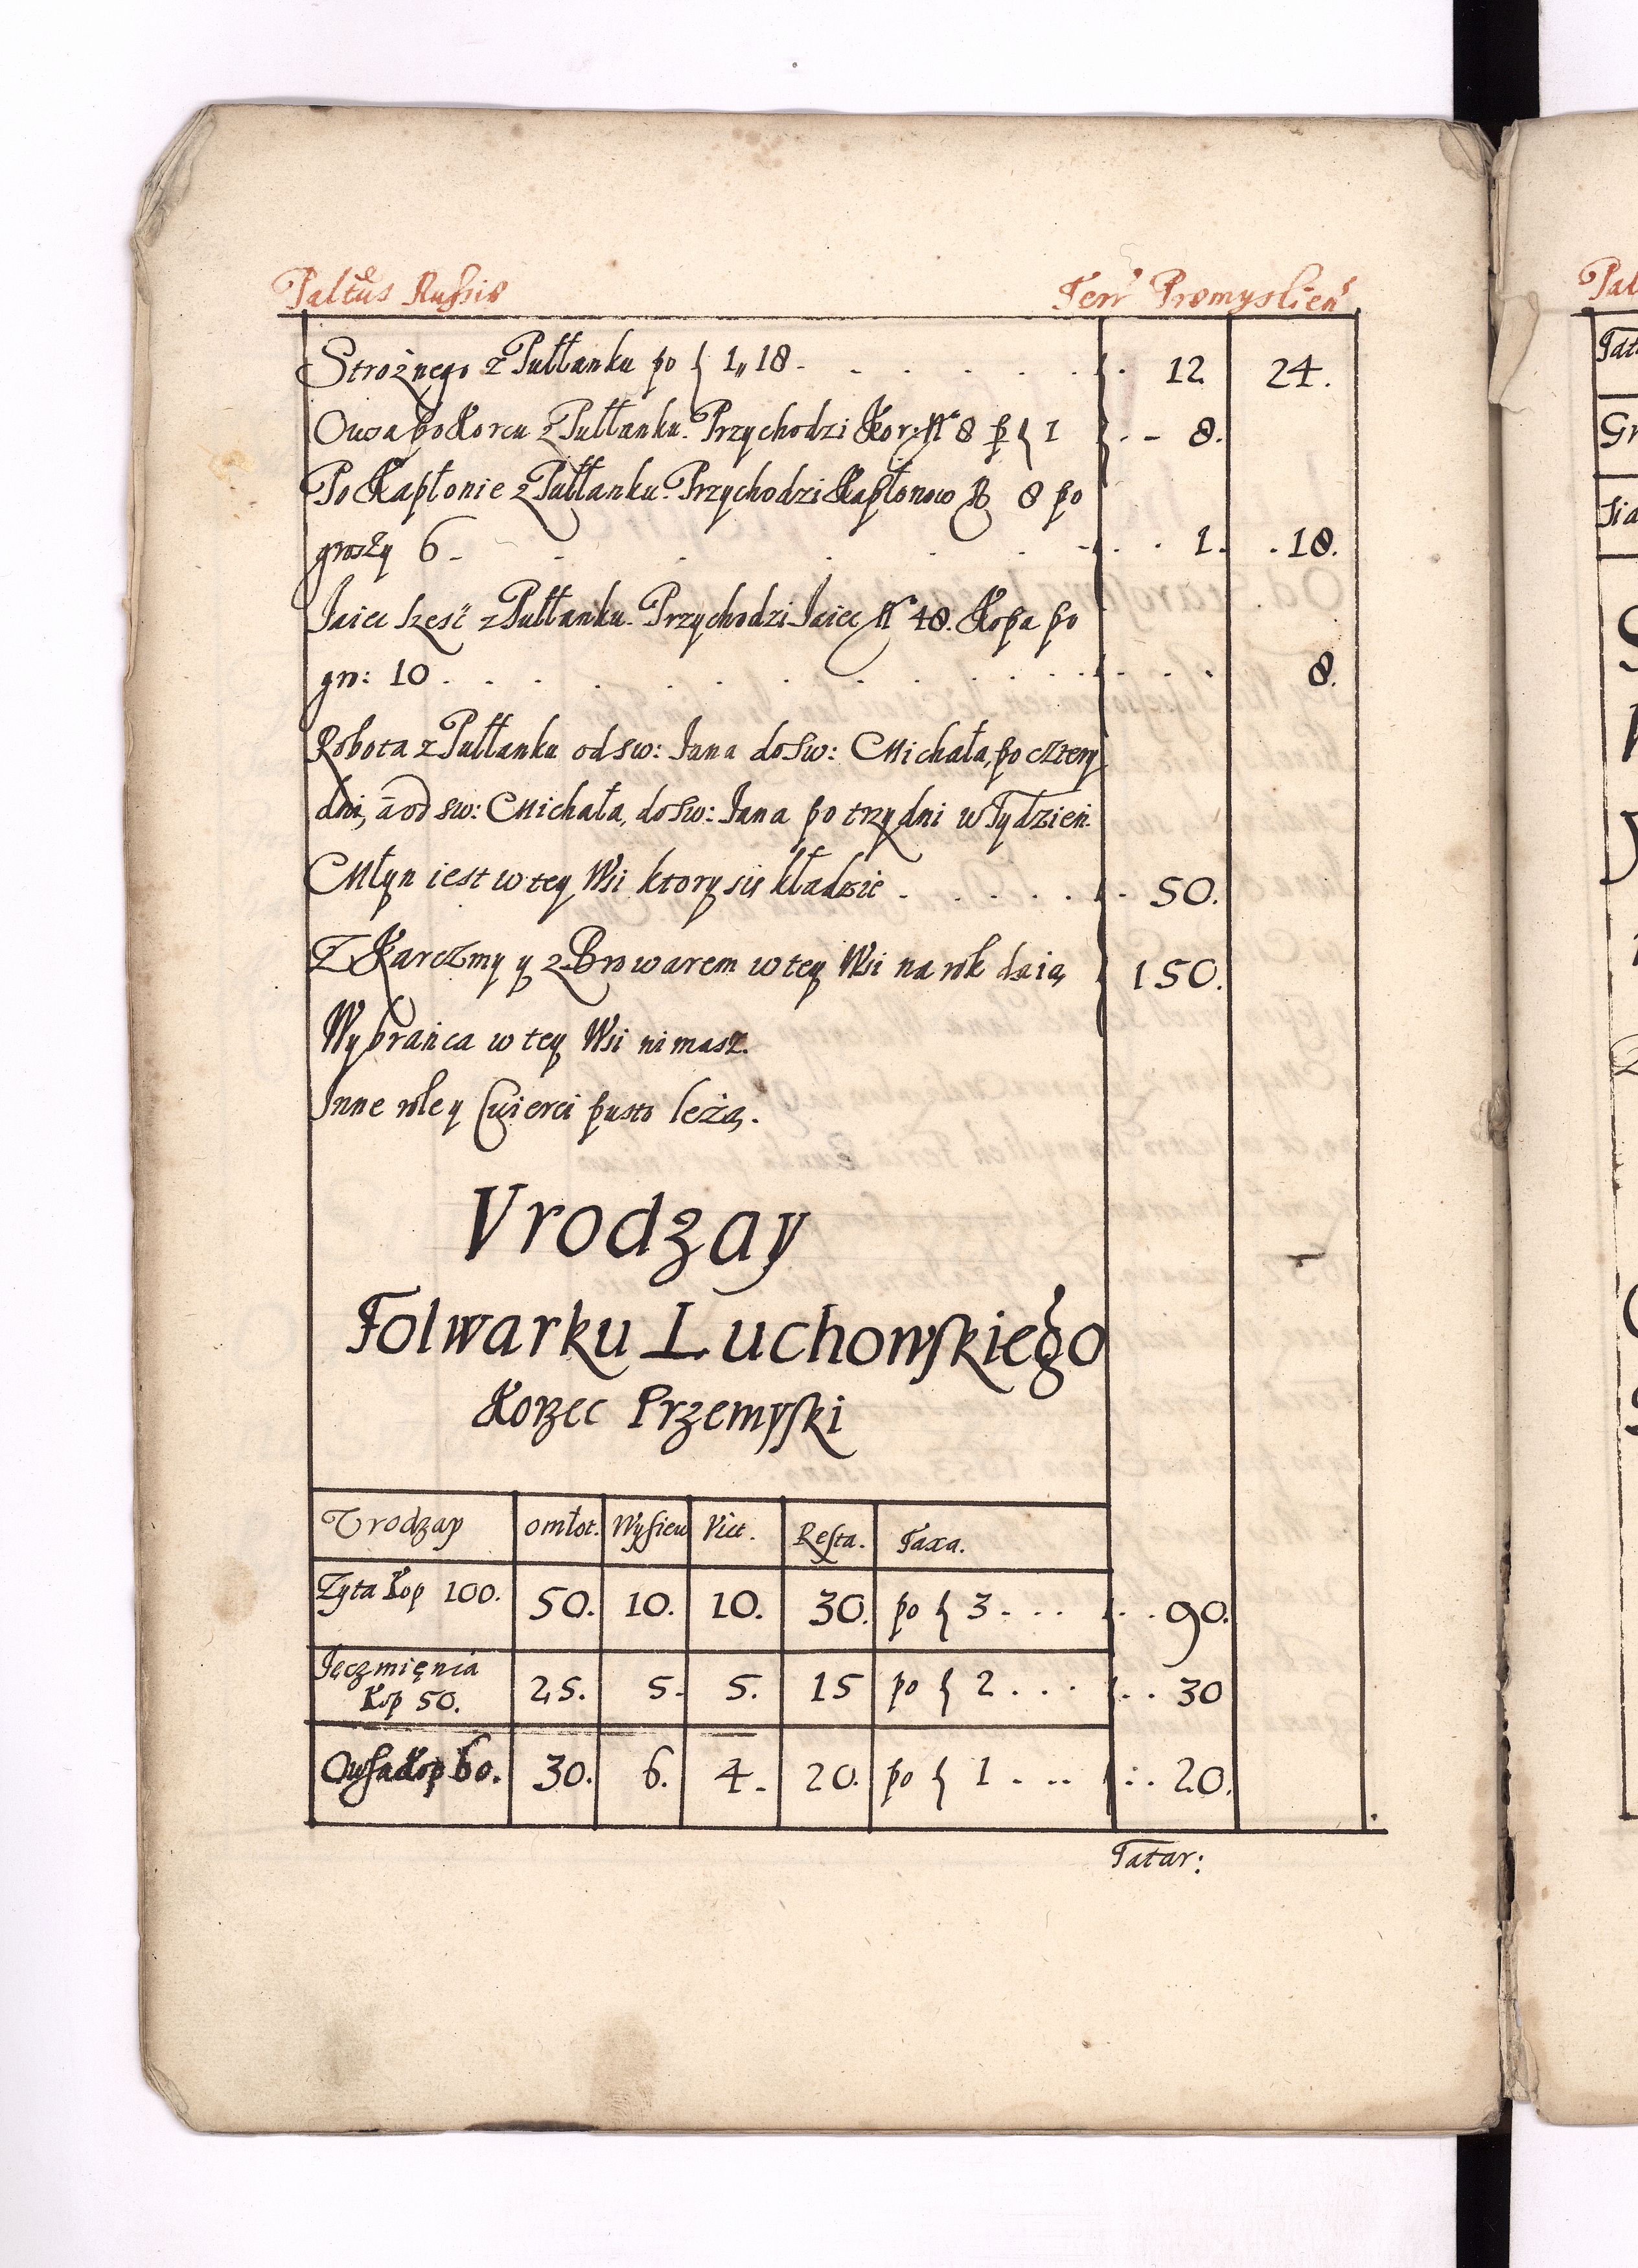 Paltus Russiæ Terr Premyslien
Strożnego z Pułłanku po { 1,, 18 . . . . . . 12 24.
Owsa po Korcu z Pułłanku. Przychodzi Kor: N 8 p { 1 . - 8.
Po Kapłonie z Pułłanku. Przychodzi Kapłonow N 8 po
groszy 6 . . . . . . . 1. 18.
Jaiec sześć z Pułłanku. Przychodzi Jaiec N 48. Kopa po
gro: 10 . . . . . . . . . . 8.
Robota z Pułłanku od sw: Jana do Sw: Michała, po cztery
dni, a od sw: Michała, do Sw: Jana po trzy dni w Tydzień.
Młyn iest w tey Wsi ktory się kładzie . . . . . 50.
Z Karczmy y z Browarem w tey Wsi na rok daią 150.
Wybrańca w tey Wsi ni masz.
Inne role y Cwierci pusto leżą.
Vrodzay
Folwarku Luchowskiego
Korzec Przemyski
Vrodzay omłot. Wysiew Vict. Resta. Taxa.
Zyta Kop 100. 50. 10. 10. 30. po { 3 . . . 90.
Jęczmięnia
Kop 50. 25. 5. 5. 15 po { 2 . . . 30
Owsa Kop 60. 30. 6. 4. 20. po { 1 . . . 20.
Tatar:
Pal
Tat
Gr
Sia